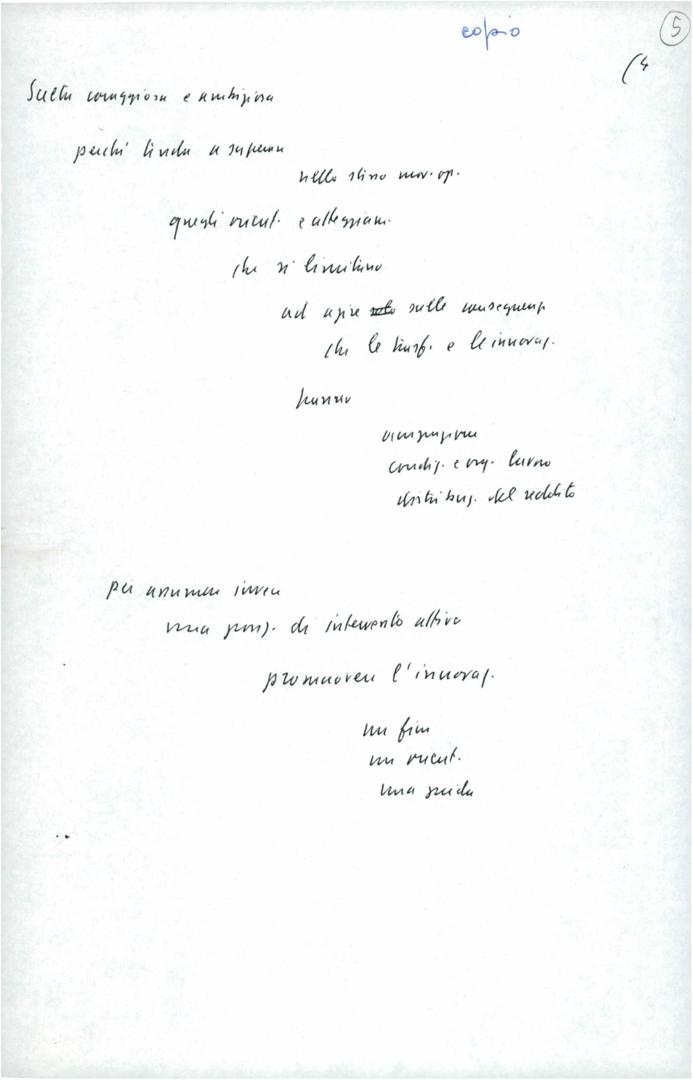 copia
5
(4
Scelta coraggiosa e ambiziosa
perché tende a superare
nello stesso mov. op.
quegli orient. e atteggiam.
che si limitano
ad agire solo sulle conseguenz
che le trasf. e le innovaz.
hanno
occupazione
condiz. e org. lavoro
distribuz. del reddito
per assumere invece
una posiz. di intervento attivo
promuovere l'innovaz.
un fine
un orient.
una guida